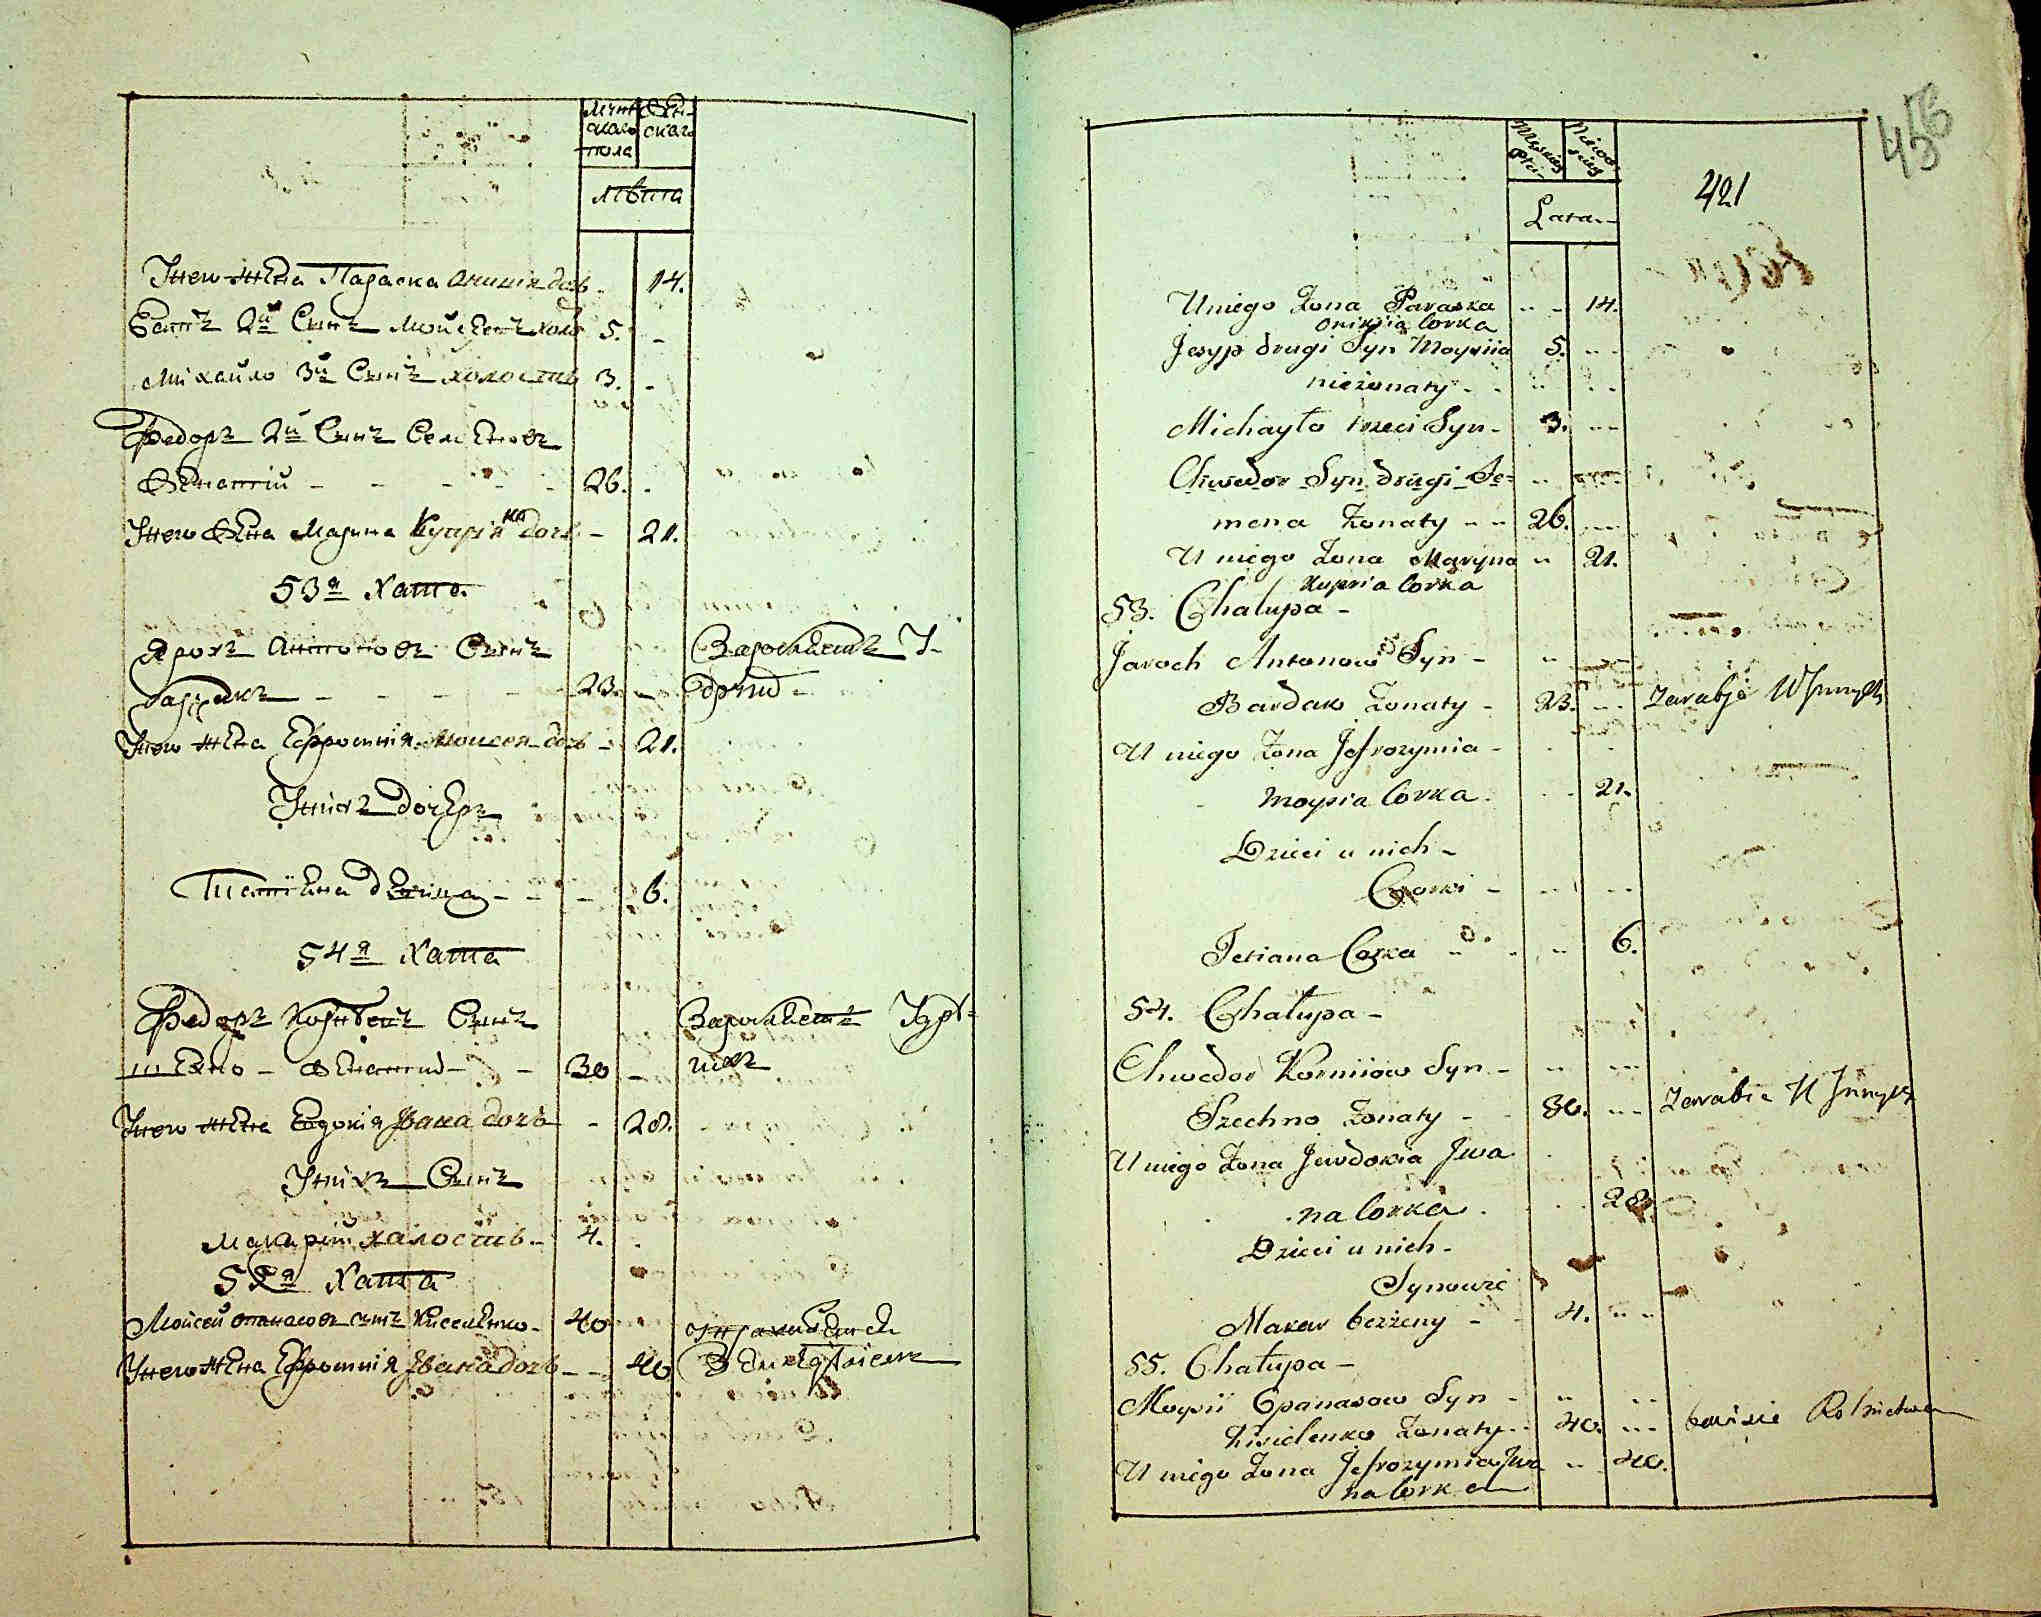 Мужскаго пола
Женскаго
Лѣта
У него жена Параска Онисія дочь - 14.
2й Сынъ Мойсей холо 5. -
Михайло 3й Сынъ холостъ 3. -
Федоръ 2й Сынъ Семеновъ
Женатій - - - - - 26. -
У него Жена Марина Купріяна дочь - 21.
53я Хата
Ярохъ Антоновъ Сынъ
Бардакъ - - - - - 23. -
У него жена Ефросинія Моисея дочь - 21.
У нихъ дочерь
Татіяна девица - - - 6.
54я Хата
Федоръ Корнѣевъ Сынъ
- Женатый - - 30 -
У него жена Евдокія Ивана дочь - 28.
У нихъ Сынъ
Макарій халостъ - 4. -
55я Хата
Мойсей Опанасовъ сынъ Киселенко - 40
У него жена Ефросинія Ивана дочь - - 40
456
421
Męskiey Płci
Niewieskiey
Lata
U niego Żona Paraska - - 14.
Onisiia Corka
Jesyp drugi Syn Moysiia 5. - -
nieżonaty - -
Michayło trzeci Syn - 3. - -
Chwedor Syn drugi Se=
mena Żonaty - - 26. - -
U niego Żona Maryna - 21.
Kupria Corka
53. Chałupa -
Jaroch Antonow Syn -
Bardak Żonaty - 23. - - Zarabja U Jnnych
U niego Żona Jefrozymia -
Moysia Corka - - 21.
Dzieci u nich -
Corki -
Tetiana Corka - - 6.
54. Chałupa -
Chwedor Korniiow Syn -
Szechno Żonaty - - 30. - - Zarabia U Jnnych
U niego Żona Jewdokia Jwa
na Corka - - 28.
Dzieci u nich -
Synowie
Makar bezżeny - - 4. - -
55. Chałupa -
Moysii Opanasow Syn -
Kisielenko Żonaty - - 40. - - bawi sie Rolnictwem
U niego Żona Jefrozymia Jwa - 40.
na Corka